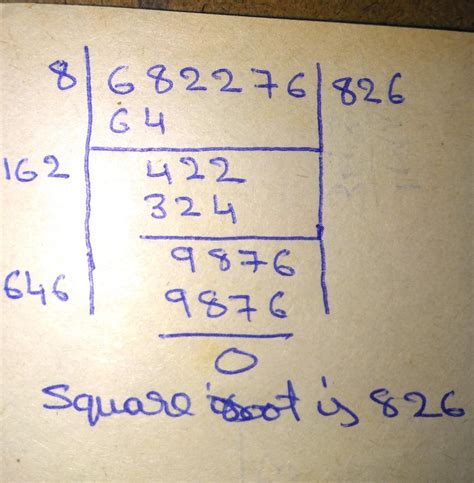 8 682276 826
64
162 422
324
9876
646 9876
0
Square root is 826